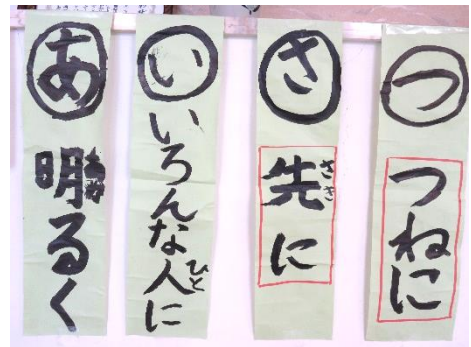 あ 明るく
い いろんな人に
ひと
さ 先に
さき
つ つねに